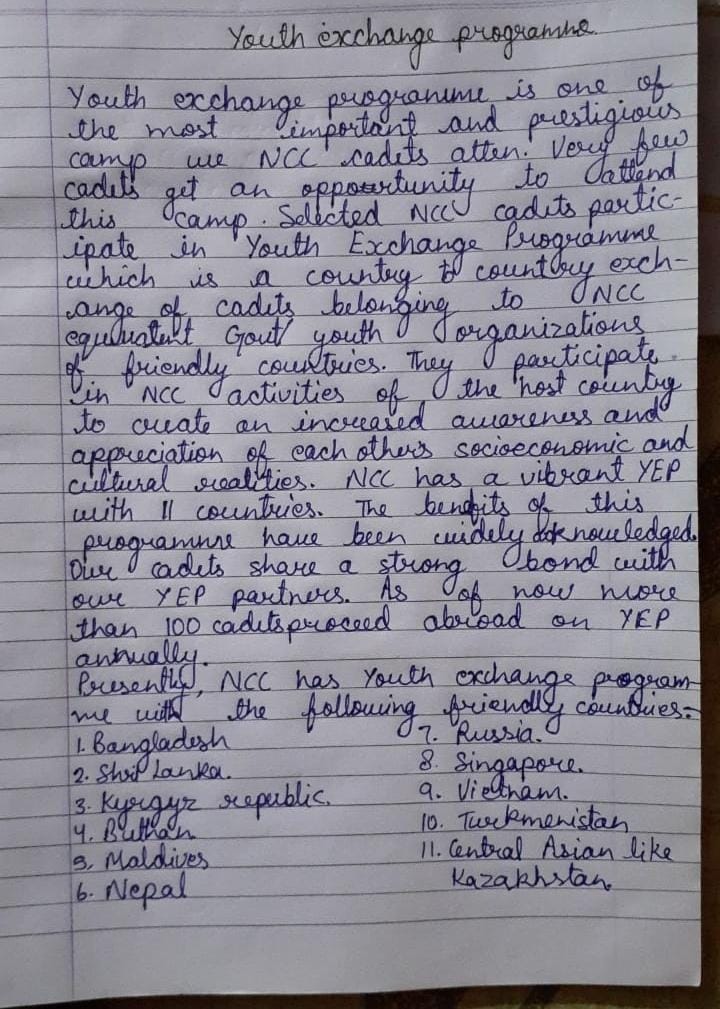 Youth exchange programme
Youth exchange programme is one of
the most important and prestigious
camp we NCC cadets atten. Very few
cadets get an opportunity to attend
this camp. Selected NCC cadets partic-
ipate in Youth Exchange Programme
which is a country to country exch-
ange of cadets belonging to NCC
equivatent Govt youth organizations
of friendly countries. They participate
in NCC activities of the host country
to create an increased awareness and
appreciation of each others socioeconomic and
cultural realities. NCC has a vibrant YEP
with 11 countries. The benefits of this
programme have been widely acknowledged.
Our cadets share a strong bond with
our YEP partners. As of now more
than 100 cadets proceed abroad on YEP
annually.
Presently, NCC has Youth exchange program
me with the following friendly countries:-
1. Bangladesh
2. Shri Lanka.
3. Kyrgyz republic.
4. Buthan
5. Maldives
6. Nepal
7. Russia.
8. Singapore.
9. Vietnam.
10. Turkmenistan
11. Central Asian like
Kazakhstan.